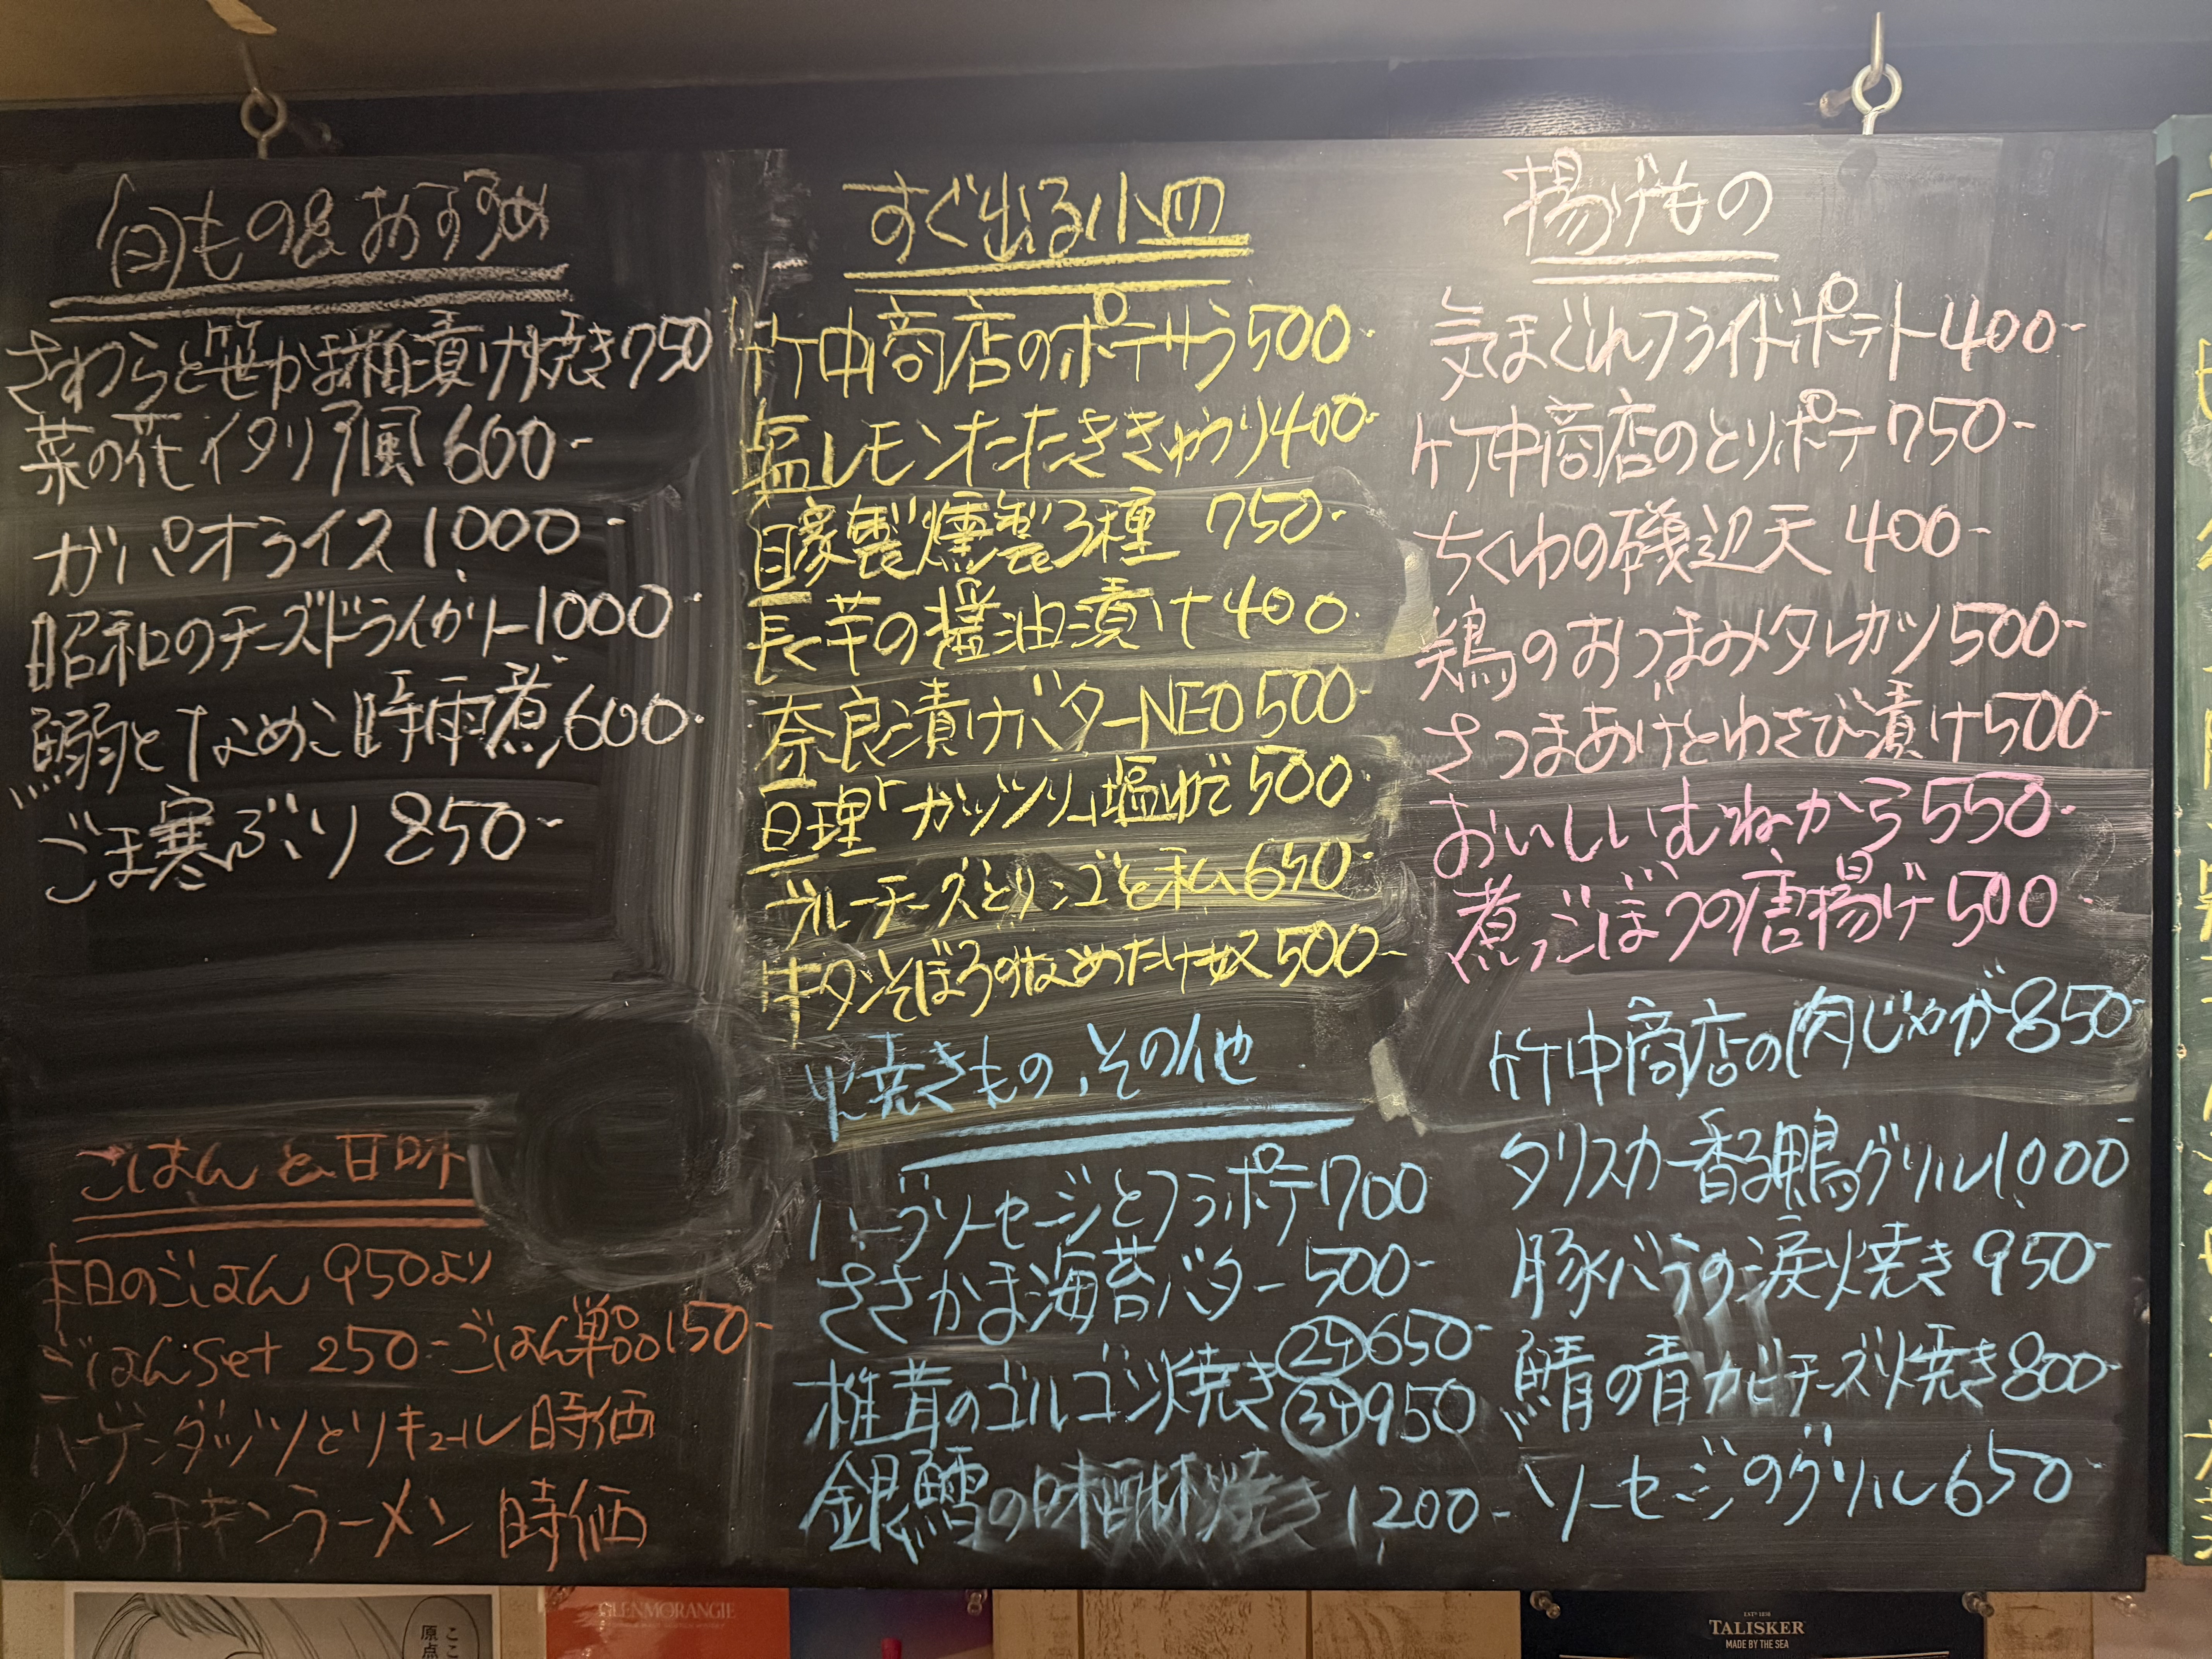 旬もの&おすすめ
さわらと笹かま粕漬け焼き750
菜の花イタリア風 600-
ガパオライス 1,000-
昭和のチーズドライカリー1000-
鰯となめこ時雨煮600-
ごま寒ぶり 850-
ごはんと甘味
本日のごはん 950より
ごはんset 250- ごはん単品150-
ハーゲンダッツとリキュール 時価
〆のチキンラーメン 時価
すぐ出る小皿
竹中商店のポテサラ500-
塩レモンたたききゅうり400-
自家製燻製3種 750-
長芋の醤油漬け400-
奈良漬けバターNEO500-
亘理「ガッツリ」塩ゆで500-
ブルーチーズとリンゴと私650-
牛タンそぼろのなめたけ奴500-
焼きもの、その他
ハーブソーセージとフラポテ700
ささかま海苔バター500-
椎茸のゴルゴン焼き 2ケ650-
3ケ950
銀鱈の味醂焼き 1,200-
揚げもの
気まぐれフライドポテト400-
竹中商店のとりポテ750-
ちくわの磯辺天 400-
鶏のおつまみタレカツ500-
さつまあげとわさび漬け500-
おいしいむねから550-
煮ごぼうの唐揚げ500
竹中商店の肉じゃが850-
タリスカー香る鴨グリル1,000
豚バラの涙焼き 950-
鯖の青カビチーズ焼き800-
ソーセージのグリル650
ここ
原点
GLENMORANGIE
TALISKER
MADE BY THE SEA